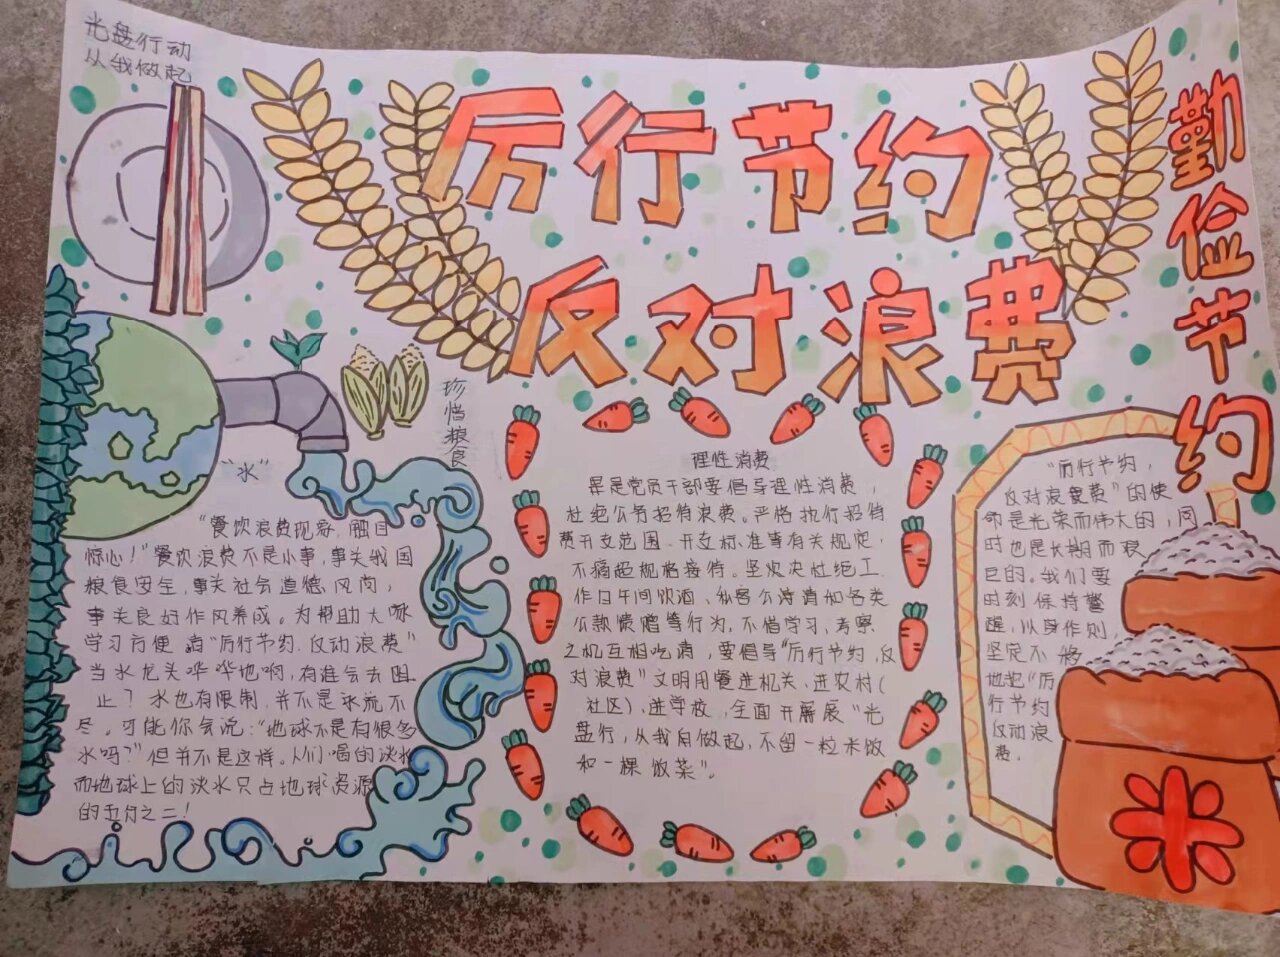 光盘行动
从我做起
厉行节约
反对浪费
勤俭节约
珍惜粮食
“水”
“餐饮浪费现象，触目
惊心！”餐饮浪费不是小事，事关我国
粮食安全，事关社会道德风尚，
事关良好作风养成。为帮助大家
学习方便，请“厉行节约、反动浪费”
当水龙头哗哗地啊，有谁会去阻
止？水也有限制，并不是永流不
尽。可能你会说：“地球不是有很多
水吗？”但并不是这样。人们喝的淡水
而地球上的淡水只占地球资源
的五分之二！
理性消费
是党员干部要倡导理性消费，
杜绝公务招待浪费。严格执行招待
费开支范围、开支标准等有关规定，
不搞超规格接待。坚决杜绝工
作日午间饮酒、私客公请请和各类
公款馈赠等行为，不借学习、考察
之机互相吃请，要倡导“厉行节约，反
对浪费”文明用餐进机关、进农村（
社区）、进学校，全面开展展“光
盘行，从我自做起，不留一粒米饭
和一棵饭菜”。
“厉行节约，
反对浪费”的使
命是光荣而伟大的，同
时也是长期而艰
巨的。我们要
时刻保持警
醒，以身作则，
坚定不移
地把“厉
行节约
反动浪
费。
米